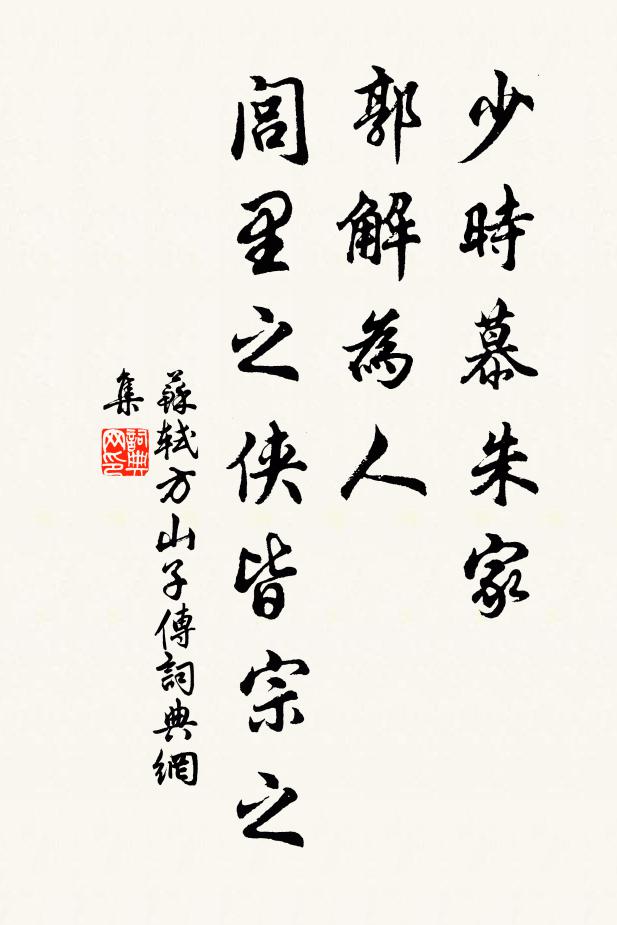 少時慕朱家
郭解為人
閭里之侠皆宗之
蘇軾方山子傳詞典網
集
詞典
网印